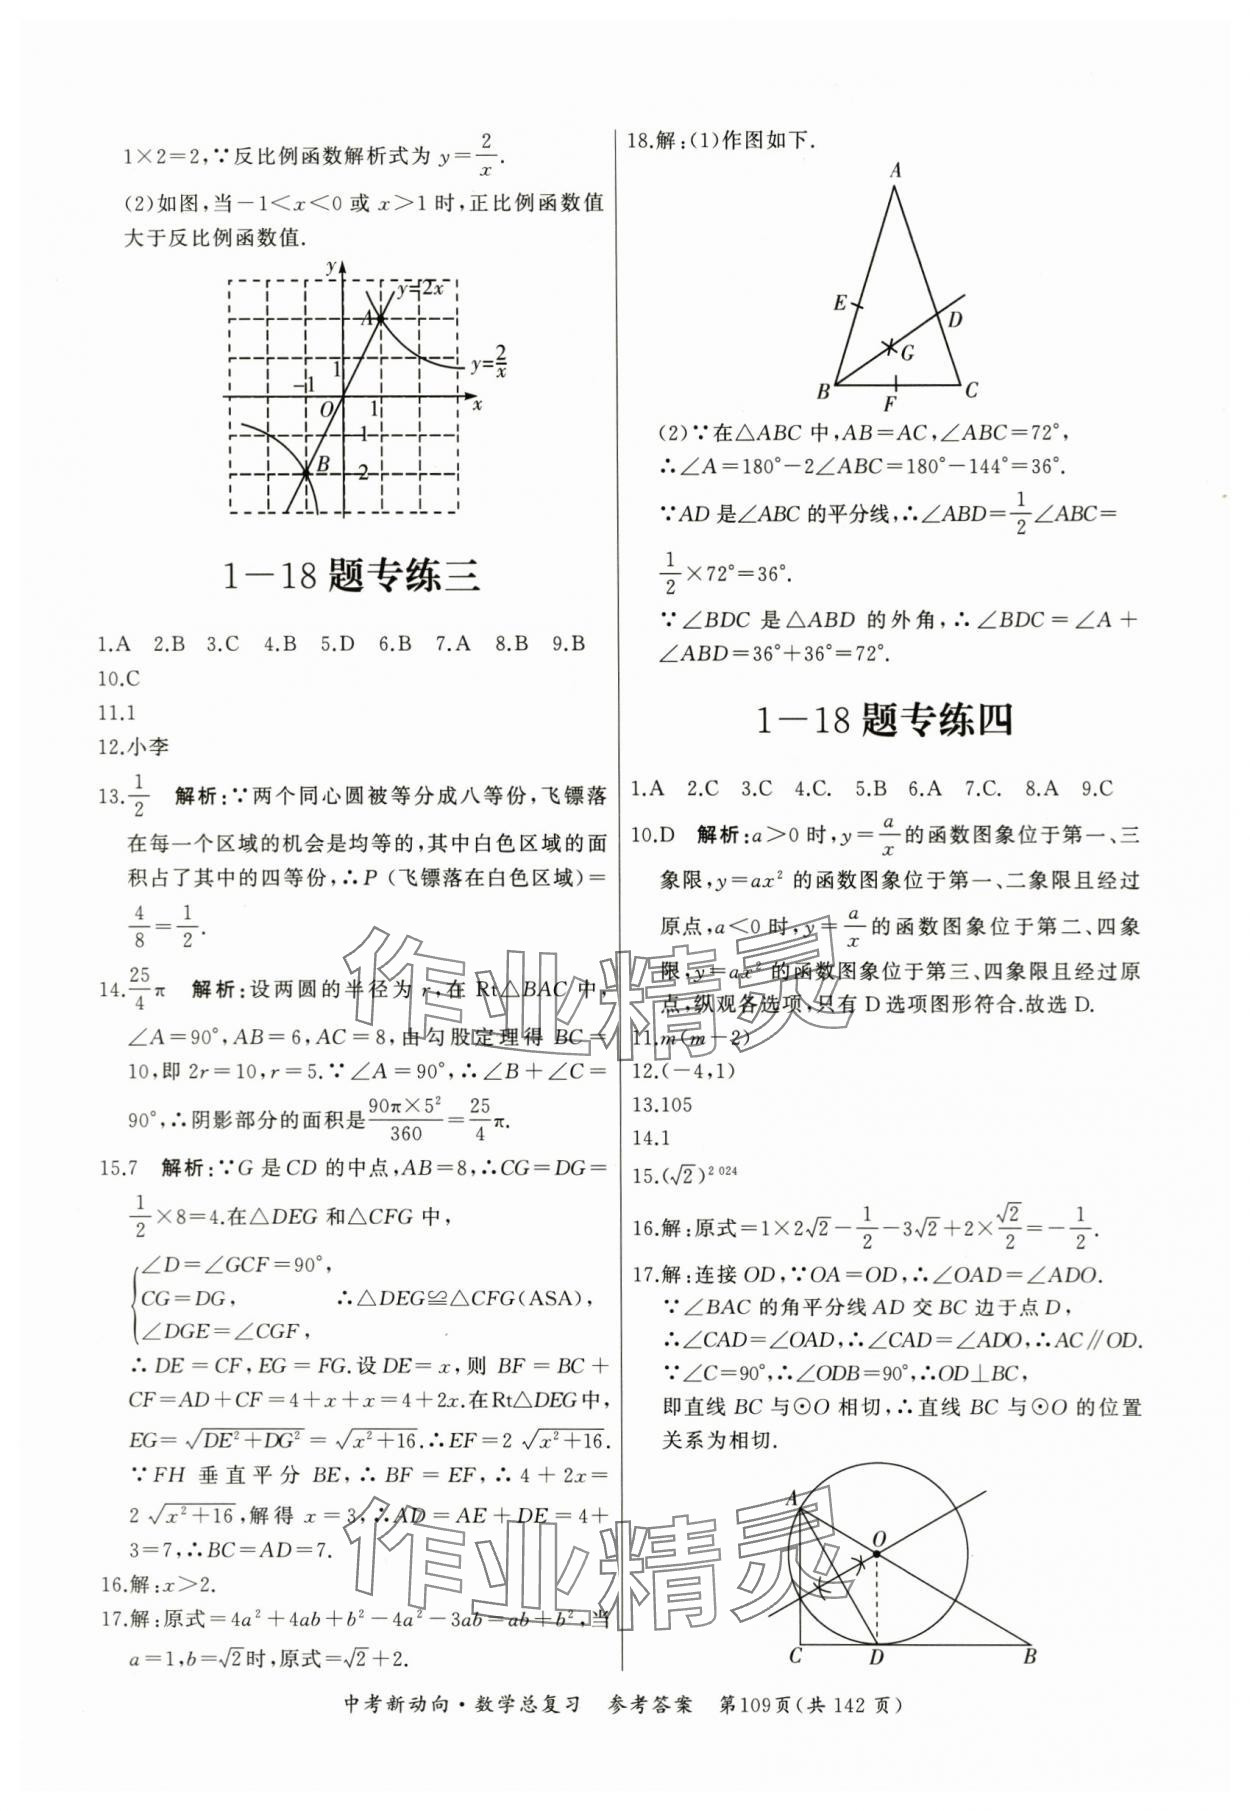 1×2=2,∵反比例函数解析式为 y=2/x.
(2)如图,当-1<x<0 或 x>1 时,正比例函数值
大于反比例函数值.
y
y=2x
A
1
y=2/x
-1
O
1
x
-1
B
-2
1—18 题专练三
1.A 2.B 3.C 4.B 5.D 6.B 7.A 8.B 9.B
10.C
11.1
12.小李
13.1/2 解析:∵两个同心圆被等分成八等份,飞镖落
在每一个区域的机会是均等的,其中白色区域的面
积占了其中的四等份,∴P(飞镖落在白色区域)=
4/8=1/2.
14.25/4π 解析:设两圆的半径为 r,在 Rt△BAC 中,
∠A=90°,AB=6,AC=8,由勾股定理得 BC=
10,即 2r=10,r=5.∵∠A=90°,∴∠B+∠C=
90°,∴阴影部分的面积是90π×5²/360=25/4π.
15.7 解析:∵G 是 CD 的中点,AB=8,∴CG=DG=
1/2×8=4.在△DEG 和△CFG 中,
∠D=∠GCF=90°,
CG=DG, ∴△DEG≌△CFG(ASA),
∠DGE=∠CGF,
∴DE=CF,EG=FG.设 DE=x,则 BF=BC+
CF=AD+CF=4+x+x=4+2x.在Rt△DEG中,
EG=√(DE²+DG²)=√(x²+16).∴EF=2√(x²+16).
∵FH 垂直平分 BE,∴BF=EF,∴4+2x=
2√(x²+16),解得 x=3,∴AD=AE+DE=4+
3=7,∴BC=AD=7.
16.解:x>2.
17.解:原式=4a²+4ab+b²-4a²-3ab=ab+b²,当
a=1,b=√2时,原式=√2+2.
18.解:(1)作图如下.
A
E
D
G
B
F
C
(2)∵在△ABC 中,AB=AC,∠ABC=72°,
∴∠A=180°-2∠ABC=180°-144°=36°.
∵AD 是∠ABC 的平分线,∴∠ABD=1/2∠ABC=
1/2×72°=36°.
∵∠BDC 是△ABD 的外角,∴∠BDC=∠A+
∠ABD=36°+36°=72°.
1—18 题专练四
1.A 2.C 3.C 4.C. 5.B 6.A 7.C. 8.A 9.C
10.D 解析:a>0 时,y=a/x的函数图象位于第一、三
象限,y=ax² 的函数图象位于第一、二象限且经过
原点,a<0 时,y=a/x的函数图象位于第二、四象
限,y=ax² 的函数图象位于第三、四象限且经过原
点,纵观各选项,只有 D 选项图形符合.故选 D.
11.m(m-2)
12.(-4,1)
13.105
14.1
15.(√2)² ⁰²⁴
16.解:原式=1×2√2-1/2-3√2+2×√2/2=-1/2.
17.解:连接 OD,∵OA=OD,∴∠OAD=∠ADO.
∵∠BAC 的角平分线 AD 交 BC 边于点 D,
∴∠CAD=∠OAD,∴∠CAD=∠ADO,∴AC∥OD.
∵∠C=90°,∴∠ODB=90°,∴OD⊥BC,
即直线 BC 与⊙O 相切,∴直线 BC 与⊙O 的位置
关系为相切.
A
O
C
D
B
作业精灵
作业精灵
中考新动向·数学总复习 参考答案 第109页(共 142 页)